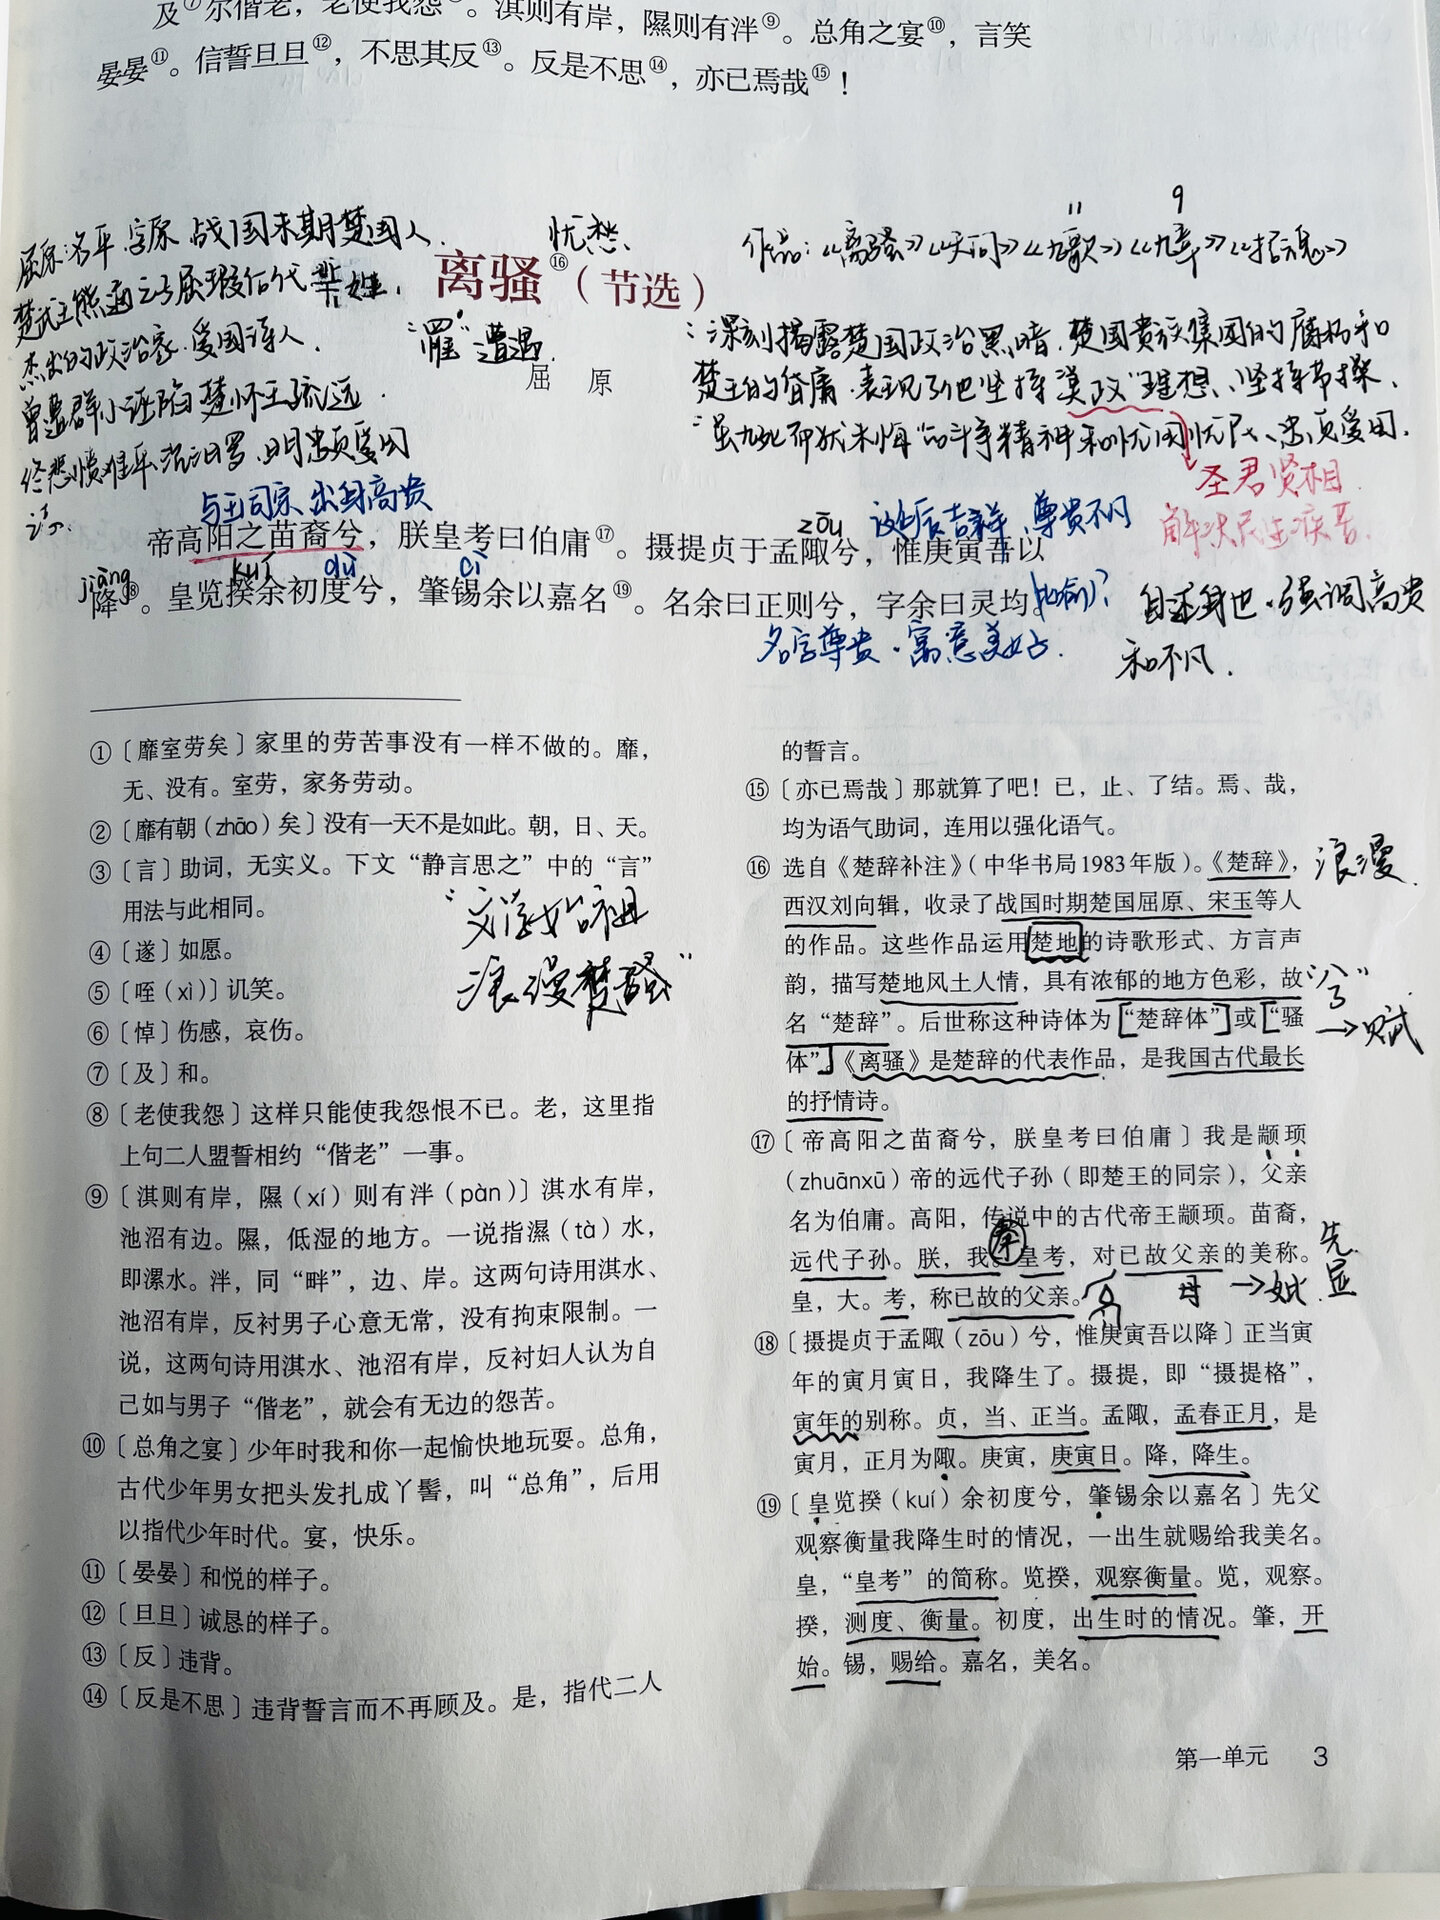 及⑦尔偕老，老使我怨⑧。淇则有岸，隰则有泮⑨。总角之宴⑩，言笑
晏晏⑪。信誓旦旦⑫，不思其反⑬。反是不思⑭，亦已焉哉⑮！
屈原：名平，字原，战国末期楚国人，
楚武王熊通之子屈瑕后代，芈姓，
杰出的政治家、爱国诗人，
曾遭群小诬陷，楚怀王疏远，
终悲愤难平，沉汨罗，明忠贞爱国
忧愁、
离骚⑯（节选）
"罹"遭遇。
屈 原
作品：《离骚》《天问》《九歌》《九章》《招魂》
11
9
：深刻揭露楚国政治黑暗，楚国贵族集团的腐朽和
楚王的昏庸，表现了他坚持"美政"理想、坚持节操、
"虽九死而犹未悔"的斗争精神和忧国忧民、忠贞爱国。
圣君贤相
解决民生疾苦。
与王同宗、出身高贵
zōu
生辰吉祥、尊贵不凡
帝高阳之苗裔兮，朕皇考曰伯庸⑰。摄提贞于孟陬兮，惟庚寅吾以
jiàng
kuí
cì
降⑱。皇览揆余初度兮，肇锡余以嘉名⑲。名余曰正则兮，字余曰灵均。
名字尊贵，寓意美好。
自述身世，强调高贵
和不凡。
①〔靡室劳矣〕家里的劳苦事没有一样不做的。靡，
无、没有。室劳，家务劳动。
②〔靡有朝（zhāo）矣〕没有一天不是如此。朝，日、天。
③〔言〕助词，无实义。下文“静言思之”中的“言”
用法与此相同。
④〔遂〕如愿。
⑤〔咥（xì）〕讥笑。
⑥〔悼〕伤感，哀伤。
⑦〔及〕和。
⑧〔老使我怨〕这样只能使我怨恨不已。老，这里指
上句二人盟誓相约“偕老”一事。
⑨〔淇则有岸，隰（xí）则有泮（pàn）〕淇水有岸，
池沼有边。隰，低湿的地方。一说指濕（tà）水，
即漯水。泮，同“畔”，边、岸。这两句诗用淇水、
池沼有岸，反衬男子心意无常，没有拘束限制。一
说，这两句诗用淇水、池沼有岸，反衬妇人认为自
己如与男子“偕老”，就会有无边的怨苦。
⑩〔总角之宴〕少年时我和你一起愉快地玩耍。总角，
古代少年男女把头发扎成丫髻，叫“总角”，后用
以指代少年时代。宴，快乐。
⑪〔晏晏〕和悦的样子。
⑫〔旦旦〕诚恳的样子。
⑬〔反〕违背。
⑭〔反是不思〕违背誓言而不再顾及。是，指代二人
"文学始祖
浪漫楚骚"
的誓言。
⑮〔亦已焉哉〕那就算了吧！已，止、了结。焉、哉，
均为语气助词，连用以强化语气。
⑯选自《楚辞补注》（中华书局1983年版）。《楚辞》，
西汉刘向辑，收录了战国时期楚国屈原、宋玉等人
的作品。这些作品运用楚地的诗歌形式、方言声
韵，描写楚地风土人情，具有浓郁的地方色彩，故
名“楚辞”。后世称这种诗体为“楚辞体”或“骚
体”。《离骚》是楚辞的代表作品，是我国古代最长
的抒情诗。
浪漫
"兮"
→赋
⑰〔帝高阳之苗裔兮，朕皇考曰伯庸〕我是颛顼
（zhuānxū）帝的远代子孙（即楚王的同宗），父亲
名为伯庸。高阳，传说中的古代帝王颛顼。苗裔，
远代子孙。朕，我。皇考，对已故父亲的美称。
皇，大。考，称已故的父亲。
母 →妣
先
显
⑱〔摄提贞于孟陬（zōu）兮，惟庚寅吾以降〕正当寅
年的寅月寅日，我降生了。摄提，即“摄提格”，
寅年的别称。贞，当、正当。孟陬，孟春正月，是
寅月，正月为陬。庚寅，庚寅日。降，降生。
⑲〔皇览揆（kuí）余初度兮，肇锡余以嘉名〕先父
观察衡量我降生时的情况，一出生就赐给我美名。
皇，“皇考”的简称。览揆，观察衡量。览，观察。
揆，测度、衡量。初度，出生时的情况。肇，开
始。锡，赐给。嘉名，美名。
第一单元 3